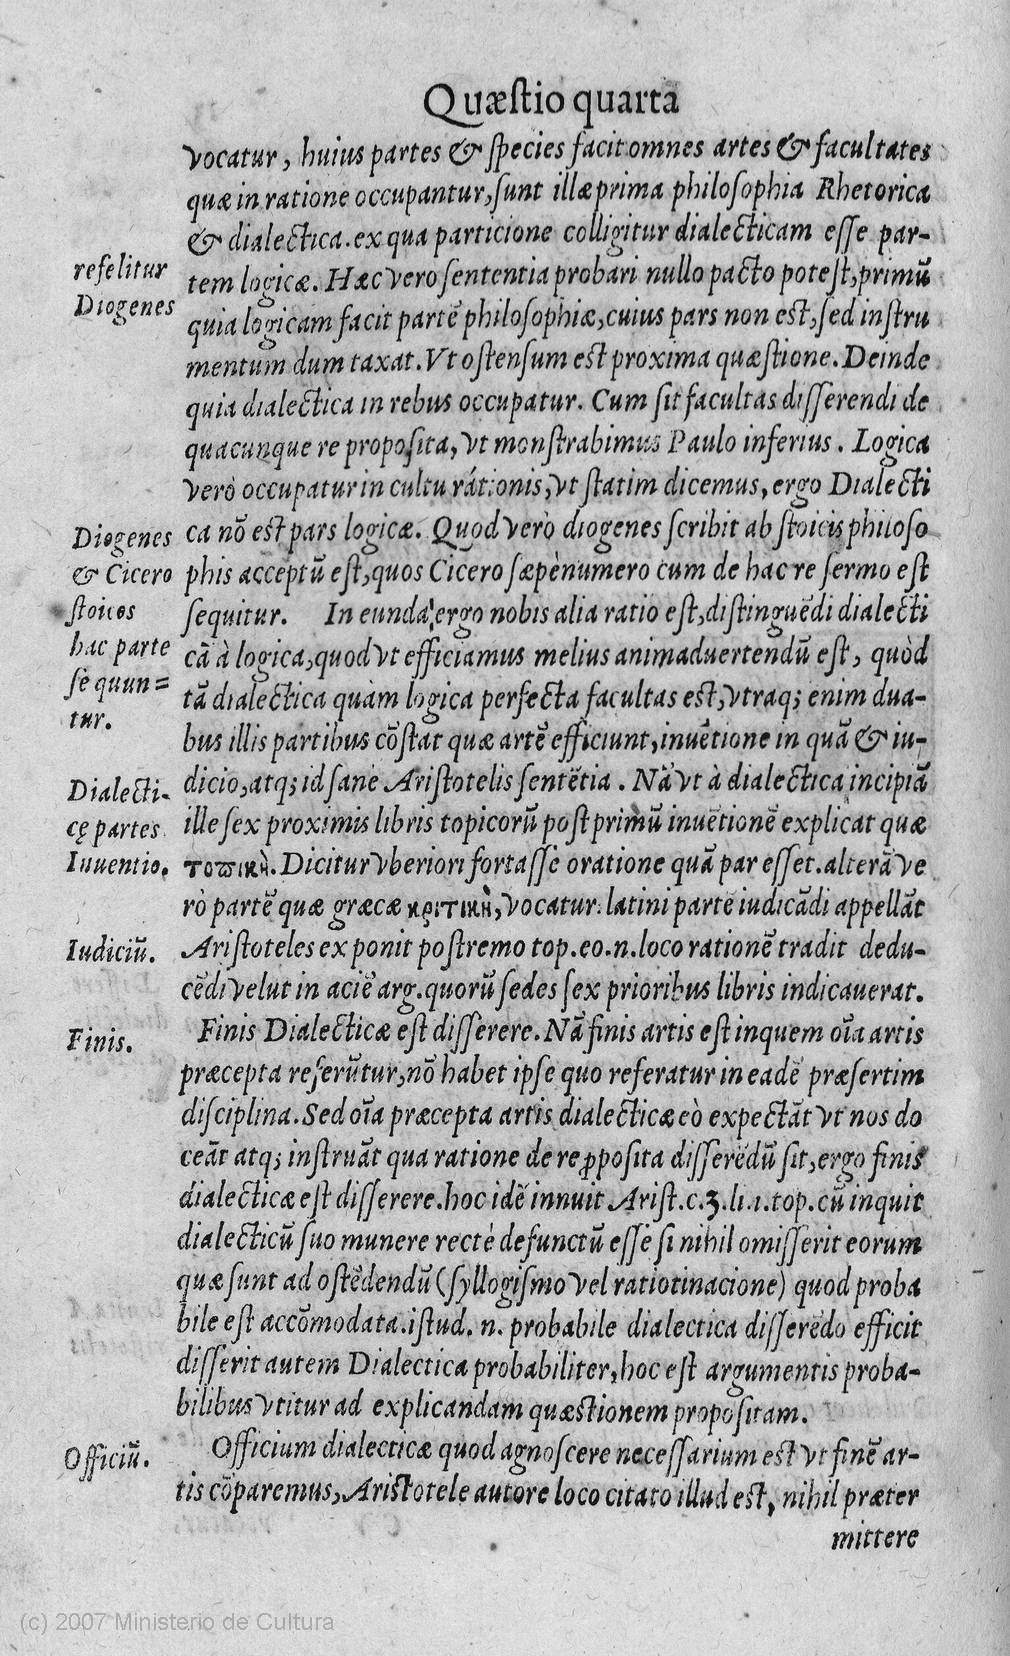 Quæstio quarta
vocatur, huius partes & species facit omnes artes & facultates
quæ in ratione occupantur, sunt illæ prima philosophia Rhetorica
& dialectica. ex qua particione colligitur dialecticam esse par-
refelitur
Diogenes
tem logicæ. Hæc vero sententia probari nullo pacto potest, primũ
quia logicam facit partẽ philosophiæ, cuius pars non est, sed instru
mentum dum taxat. Vt ostensum est proxima quæstione. Deinde
quia dialectica in rebus occupatur. Cum sit facultas disserendi de
quacunque re proposita, vt monstrabimus Paulo inferius. Logica
verò occupatur in cultu rátionis, vt statim dicemus, ergo Dialecti
Diogenes
& Cicero
stoicos
hac parte
sè quun=
tur.
ca nõ est pars logicæ. Quod verò diogenes scribit ab stoicis philoso
phis acceptũ est, quos Cicero sæpènumero cum de hac re sermo est
sequitur. In eundã ergo nobis alia ratio est, distinguẽdi dialecti
cã à logica, quod vt efficiamus melius animaduertendũ est, quòd
tã dialectica quàm logica perfecta facultas est, vtraq; enim dua-
bus illis partibus cõstat quæ artẽ efficiunt, inuẽtione in quã & iu-
Dialecti-
cę partes
Inuentio.
dicio, atq; id sanè Aristotelis sentẽtia. Nã vt à dialectica incipiã
ille sex proximis libris topicorũ post primũ inuẽtionẽ explicat quæ
τοπικὴ. Dicitur vberiori fortasse oratione quã par esset. alterã ve
rò partẽ quæ græcæ κριτικὴ, vocatur: latini partẽ iudicãdi appellãt
Iudiciũ.
Aristoteles exponit postremo top. eo. n. loco rationẽ tradit dedu-
cẽdi velut in aciẽ arg. quorũ sedes sex prioribus libris indicauerat.
Finis.
Finis Dialecticæ est disserere. Nã finis artis est inquem oĩa artis
præcepta referũtur, nõ habet ipse quo referatur in eadẽ præsertim
disciplina. Sed oĩa præcepta artis dialecticæ eò expectãt vt nos do
ceãt atq; instruãt qua ratione de re ꝓposita disserẽdũ sit, ergo finis
dialecticæ est disserere. hoc idẽ innuit Arist. c. 3. li. 1. top. cũ inquit
dialecticũ suo munere rectè defunctũ esse si nihil omisserit eorum
quæ sunt ad ostẽdendũ (syllogismo vel ratiotinacione) quod proba
bile est accõmodata. istud. n. probabile dialectica disserẽdo efficit
disserit autem Dialectica probabiliter, hoc est argumentis proba-
bilibus vtitur ad explicandam quæstionem propositam.
Officiũ.
Officium dialecticæ quod agnoscere necessarium est vt finẽ ar-
tis cõparemus, Aristotele autore loco citato illud est, nihil præter
mittere
(c) 2007 Ministerio de Cultura